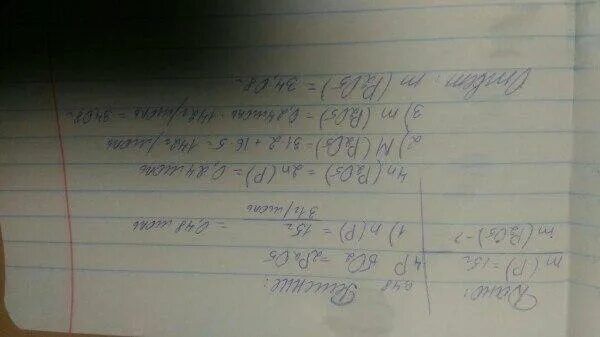 Дано:
m(P)=15г
m(P₂O₅)-?
Решение:
0,48
4P 5O₂=2P₂O₅
1) n(P) = 15г / 31г/моль = 0,48 моль
4n(P₂O₅)=2n(P)=0,24 моль
2) M(P₂O₅)=31·2+16·5=142г/моль
3) m(P₂O₅)=0,24моль·142г/моль=34,08г
Ответ: m(P₂O₅)=34,08г